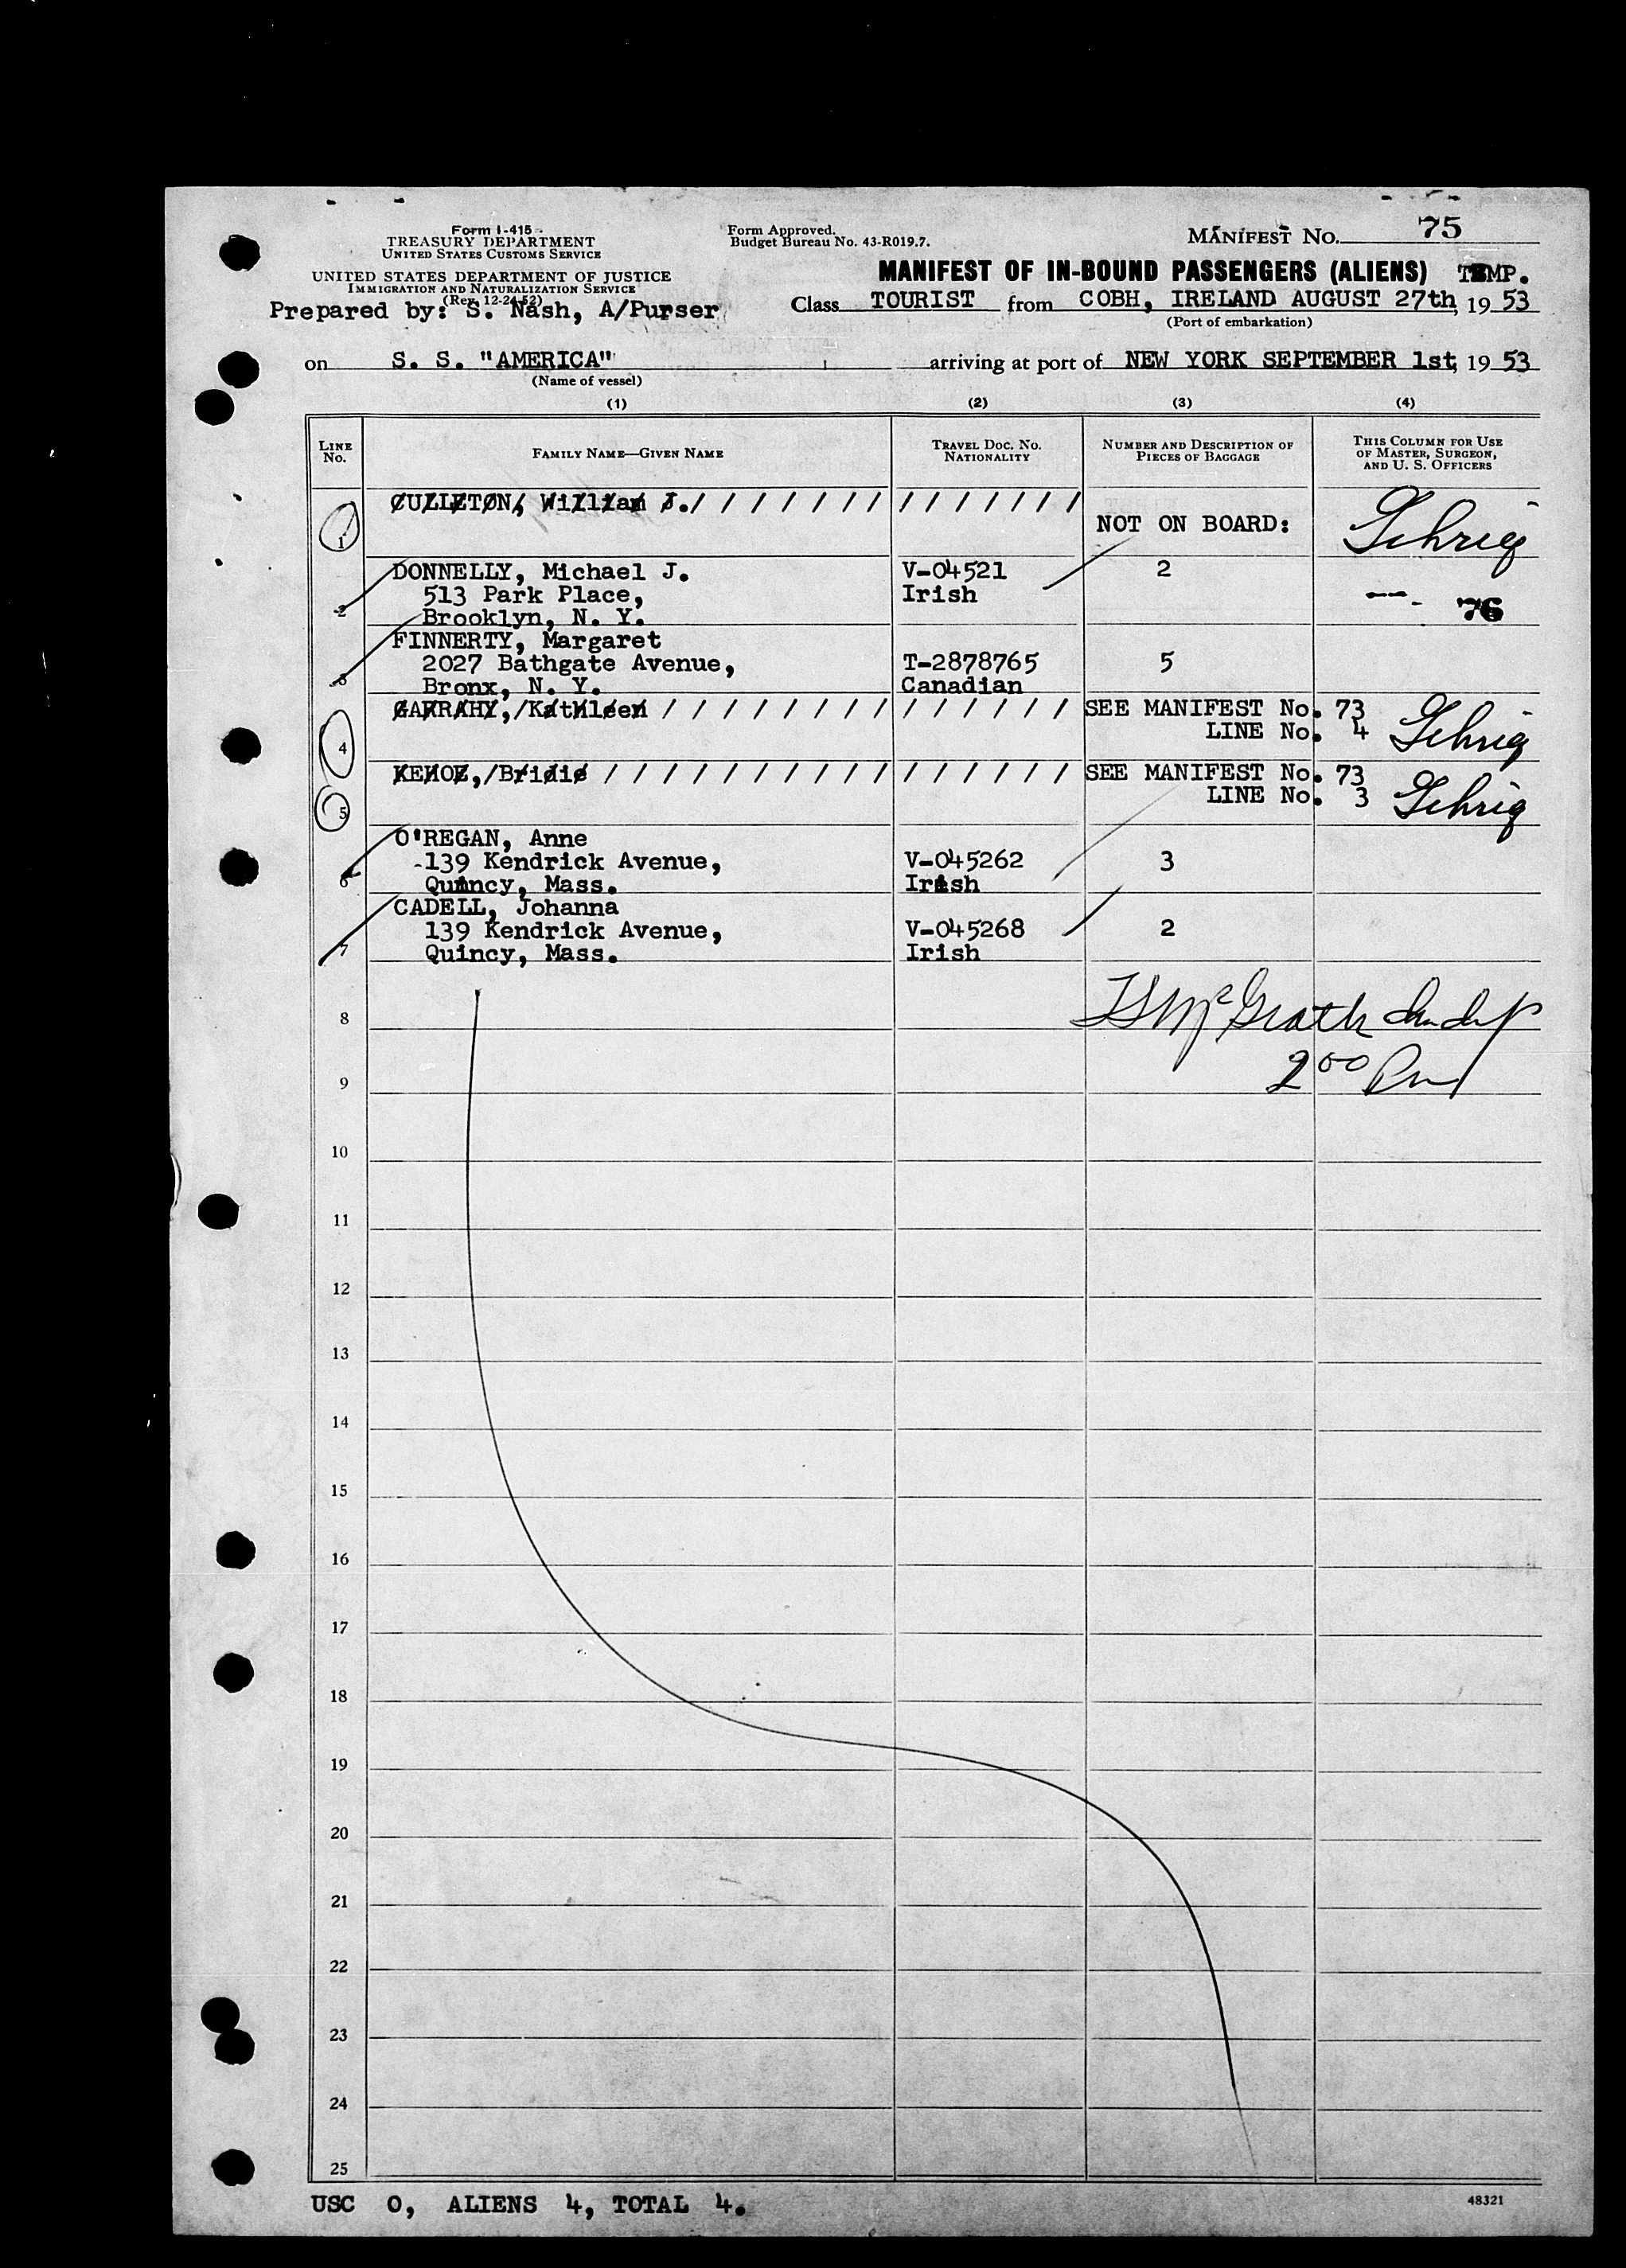 Form I-415
TREASURY DEPARTMENT
UNITED STATES CUSTOMS SERVICE
UNITED STATES DEPARTMENT OF JUSTICE
IMMIGRATION AND NATURALIZATION SERVICE
(Rev. 12-24-52)
Prepared by: S. Nash, A/Purser
Form Approved.
Budget Bureau No. 43-R019.7.
MANIFEST NO. 75
MANIFEST OF IN-BOUND PASSENGERS (ALIENS) TEMP.
Class TOURIST from COBH, IRELAND AUGUST 27th, 19 53
(Port of embarkation)
on S. S. "AMERICA" arriving at port of NEW YORK SEPTEMBER 1st, 19 53
(Name of vessel)
(1) (2) (3) (4)
LINE NO. FAMILY NAME—GIVEN NAME TRAVEL DOC. NO. NATIONALITY NUMBER AND DESCRIPTION OF PIECES OF BAGGAGE THIS COLUMN FOR USE OF MASTER, SURGEON, AND U. S. OFFICERS
CULLETON, William J. / / / / / / / / / / / / / /
1 NOT ON BOARD: Gehrig
DONNELLY, Michael J. V-04521 2
2 513 Park Place, Irish 76
Brooklyn, N. Y.
FINNERTY, Margaret
3 2027 Bathgate Avenue, T-2878765 5
Bronx, N. Y. Canadian
GARRAHY, Kathleen / / / / / / / / / / / / / / SEE MANIFEST No. 73
4 LINE No. 4 Gehrig
KEHOE, Bridie / / / / / / / / / / / / / / / / SEE MANIFEST No. 73
5 LINE No. 3 Gehrig
O'REGAN, Anne
6 139 Kendrick Avenue, V-045262 3
Quincy, Mass. Irish
CADELL, Johanna
7 139 Kendrick Avenue, V-045268 2
Quincy, Mass. Irish
8 McGrath
9 2 00 Pm
10
11
12
13
14
15
16
17
18
19
20
21
22
23
24
25
USC 0, ALIENS 4, TOTAL 4.
48321